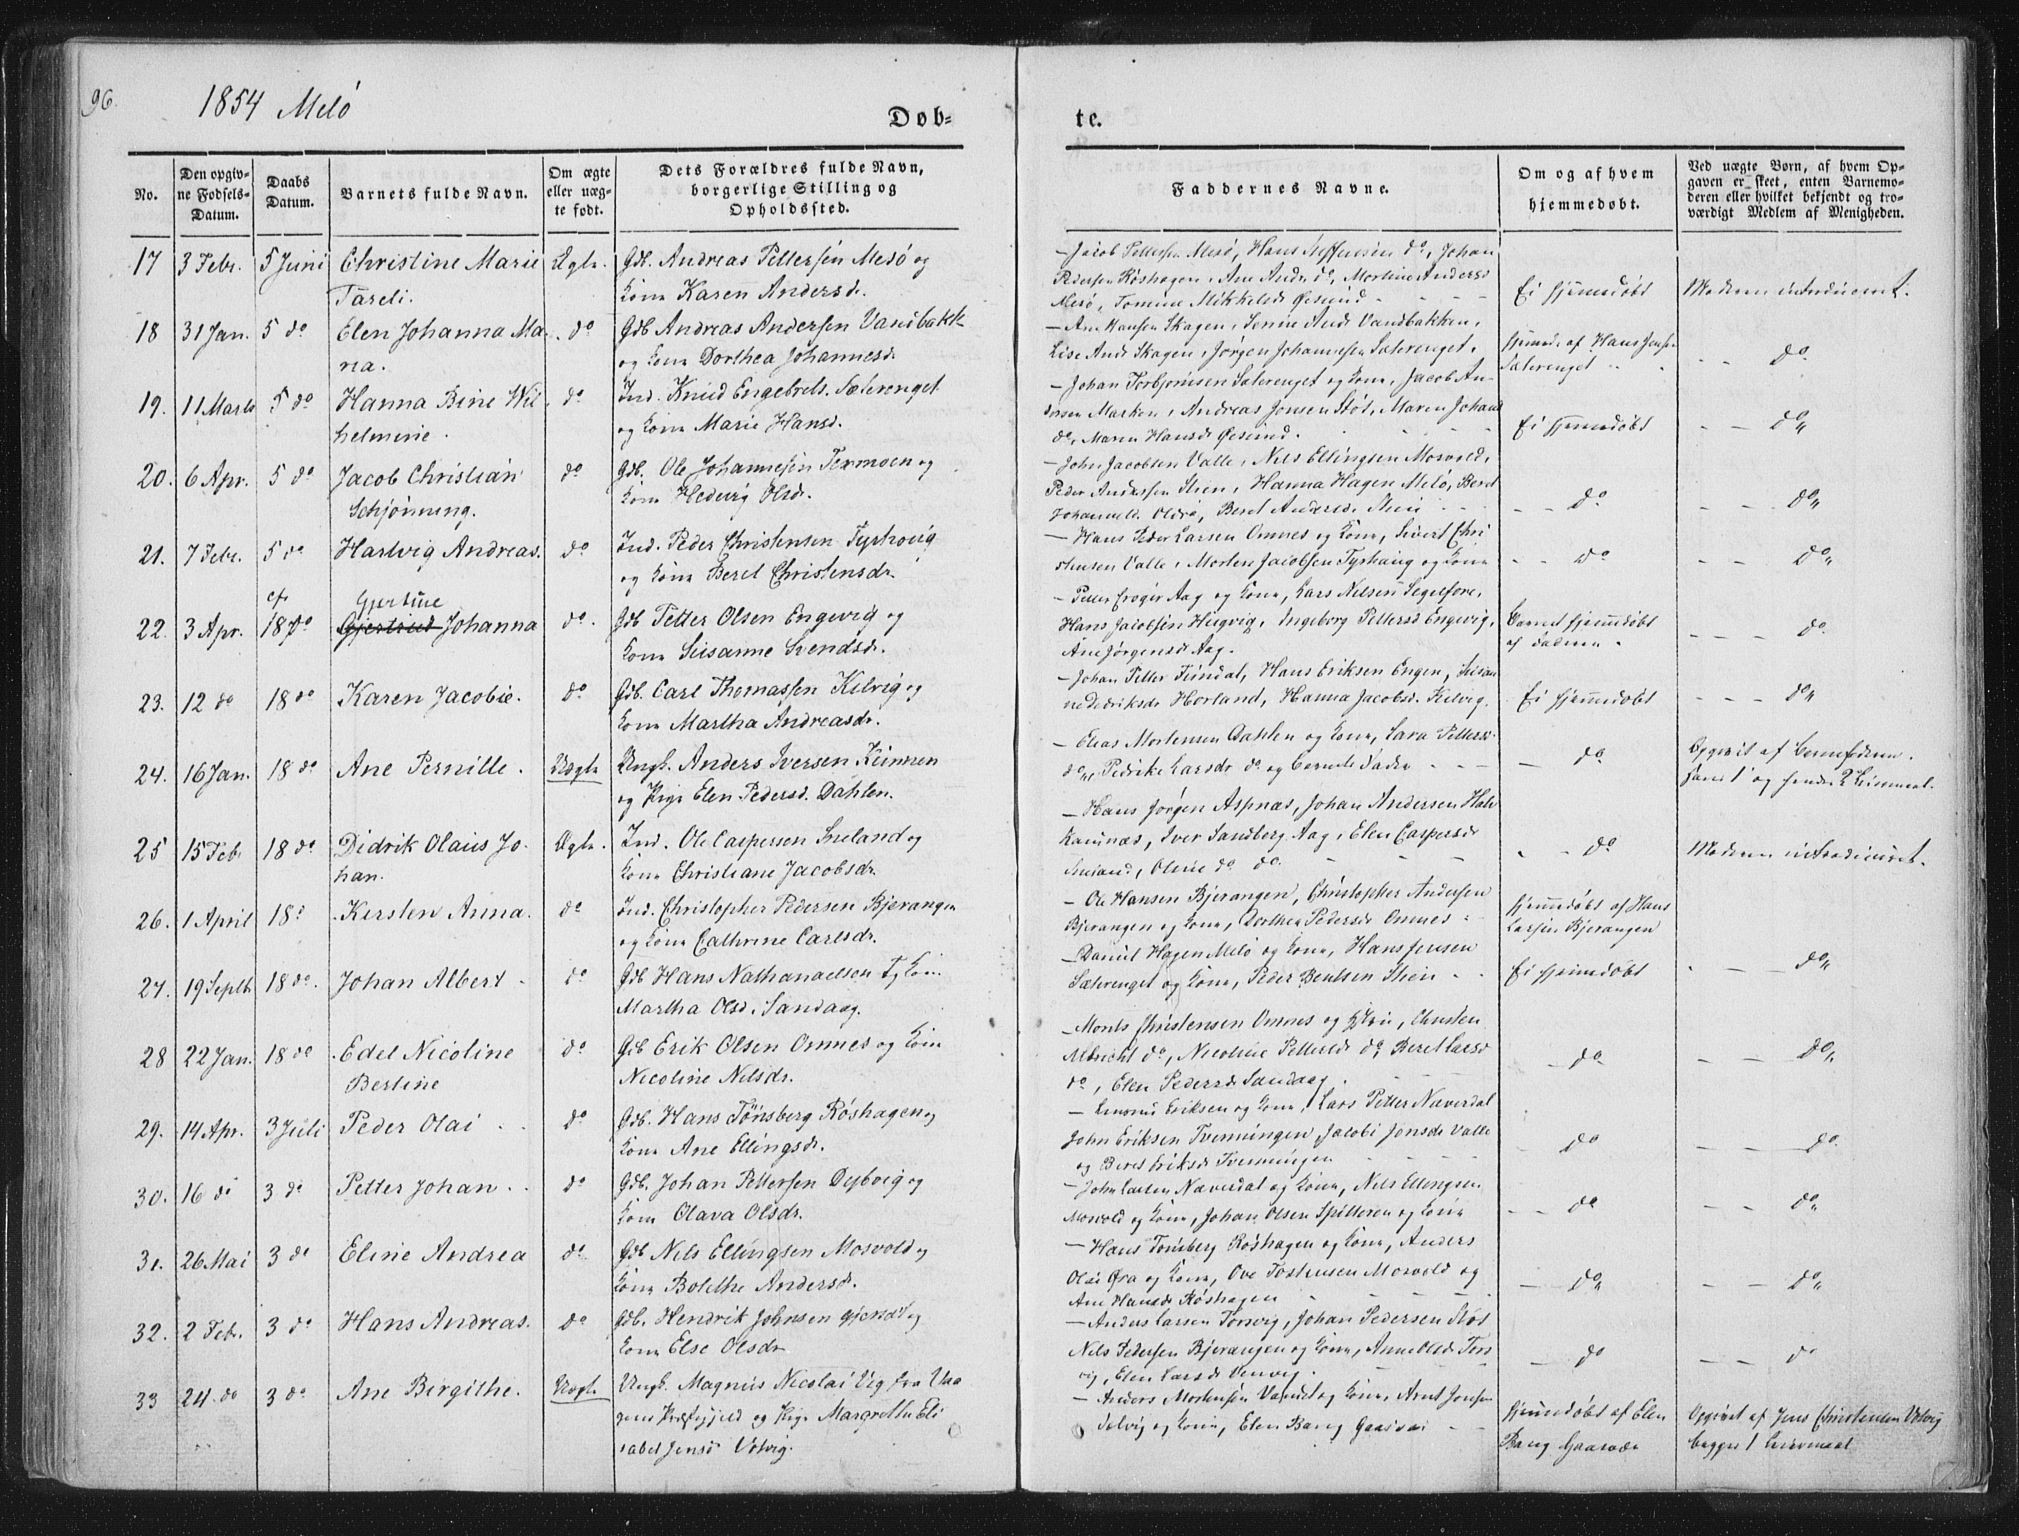 96.
1854 Melö
Døb-
te.
No.
Den opgiv-
ne Fødsels-
Datum.
Daabs
Datum.
Barnets fulde Navn.
Om ægte
eller uæg-
te født.
Dets Forældres fulde Navn,
borgerlige Stilling og
Opholdssted.
Faddernes Navne.
Om og af hvem
hjemmedøbt.
Ved uægte Børn, af hvem Op-
gaven er skeet, enten Barnemo-
deren eller hvilket bekjendt og tro-
værdigt Medlem af Menigheden.
17 3 Febr. 5 Juni Christine Marie Ægte. Gdb. Andreas Pettersen Mesö og
Tareli. Kone Karen Andersd.
Jacob Pettersen Mesö, Hans Steffensen do, Johan
Pedersen Röshagen, Ane Andr. do, Martine Andersd
Mesö, Tomine Mikkelsd Öesund
Ei hjemmedøbt
Moderen introduceret.
18 31 Jan. 5 do Elen Johanna Ma- do Gdb Andreas Andersen Vandbakk
ria. og Kone Dorthea Johannesd.
Lise Andr. Skagen, Jørgen Johannesen Sæterenget,
hjemmed. af Hans Jensen
Sæterenget
do
19. 11 Marts 5 do Hanna Bine Wil- do Ind. Knud Engebrets. Sæterenget
helmine. og Kone Marie Hansd.
Johan Torbjørnsen Sæterenget og Kone, Jacob An-
dersen Marken, Andreas Jonsen Stöt, Maren Johansd
do, Maren Hansd Öesund.
Ei hjemmedøbt
do
20. 6 Apr. 5 do Jacob Christian do Gdb. Ole Johannesen Termoen og
Schjönning. Kone Hedevig Olsdr.
John Jacobsen Valle, Nils Ellingsen Mosvold,
Peder Andersen Stien, Hanna Hagen Melö, Beret
do
do
21. 7 Febr. 5 do Hartvig Andreas. do Ind. Peder Christensen Tyshoug
og Kone Beret Christensdr.
Hans Peder Larsen Omnes og Kone, Sivert Chri
stensen Valle, Morten Jacobsen Tyshaug og Kone
do
do
Gjertine
22. 3 Apr. 18 do Gjertrud Johanna do. Gdb Petter Olsen Engevig og
Kone Susanne Svendsdr.
Petter Aag og Kone, Lars Nilsen Segelfore,
Hans Jacobsen Hugvig, Ingeborg Pettersd Engevig,
Ane Jørgensd Aag.
Barnet hjemmedøbt
af Faderen.
do
23. 12 do 18 do Karen Jacobie. do Gdb. Carl Thomassen Kilvig og
Kone Martha Andreasdr.
Johan Petter Finndal, Hans Eriksen Engen, Susan
ne Didriksd Horland, Hanna Jacobsd. Kilvig.
Ei hjemmedøbt
do
24. 16 Jan. 18 do Ane Pernille. Uægte Ungk. Anders Iversen Kunnen
og Pige Elen Pedersd. Dahlen.
Elias Mortensen Dahlen og Kone, Lava Pettersd
do, Pedrike Larsdr do og Barnets Fader
do
Opgivet af Barnefaderen.
hans 1 og hendes 2 Leiermaal.
25 15 Feb. 18 do Didrik Olaus Jo- Ægte. Ind. Ole Caspersen Sneland og
han. Kone Christiane Jacobsdr.
Hans Jørgen Aspnæs, Johan Andersen Hals
Kaninæs, Iver Sandberg Aag, Elen Caspersd
Sneland, Oline do do
do
Moderen introduceret.
26. 1 April 18 Kersten Anna. do Ind. Christopher Pedersen Bjerangen
og Kone Cathrine Carlsdr.
Ole Hansen Bjerangen, Christopher Andersen
Bjerangen og Kone, Dorthea Pedersd Omnes
hjemmedøbt af Hans
Larsen Bjerangen
27. 19 Septb. 18 do. Johan Albert do Gdb Hans Nathanaelsen og Kone
Martha Olsd. Sandaag.
Daniel Hagen Melö og Kone, Hans Jensen
Sæterenget og Kone, Peder Bentsen Stien
Ei hjemmedøbt
do
28 22 Jan. 18 do Edel Nicoline do Gdb Erik Olsen Omnes og Kone
Bertine Nicoline Nilsdr.
Monts Christensen Omnes og Kone, Christen
Albricht do, Nicoline Pettersd do, Beret Larsd
do, Elen Pedersd Sandaag.
do
do
29. 14 Apr. 3 Juli Peder Olai do Gdb. Hans Tönsberg Röshagen og
Kone Ane Ellingsdr.
Eriksen og Kone, Lars Petter Næverdal
John Eriksen Tverningen, Jacobi Jonsd Valle
og Beret Eriksd Tverningen
do
do
30. 16 do 3 do Petter Johan do Gdb. Johan Pettersen Dybvig og
Kone Olava Olsdr.
John Larsen Næverdal og Kone, Nils Ellingsen
Mosvold og Kone, Johan Olsen Spilderen og Kone
do
do
31. 26 Mai 3 do Eline Andrea do Gdb Nils Ellingsen Mosvold og
Kone Bolethe Andersdr.
Hans Tönsberg Röshagen og Kone, Anders
Olai Öra og Kone, Ove Mosvold og
Ane Hansd Röshagen
do
do
32. 2 Febr. 3 do Hans Andreas. do Gdb. Hendrik Johnsen Gjerset og
Kone Else Olsdr
Anders Larsen Torsvig, Johan Pedersen Stöt
Nils Pedersen Bjerangen og Kone, Anne Olsd Tors
vig, Elen Larsd Venvig.
do
do
33 24 do 3 do Ane Birgithe. Uægte Ungk. Magnus Nicolai Vig fra Vaa
gens Præstegjeld og Pige Margrethe Eli
sabet Jensd Votvig.
Anders Mortensen og Kone, Arnt Jensen
Selvig og Kone, Elen Bang Gaasvær
hjemmedøbt af Elen
Bang Gaasvær
Opgivet af Jens Christensen Votvig
begges 1 Leiermaal